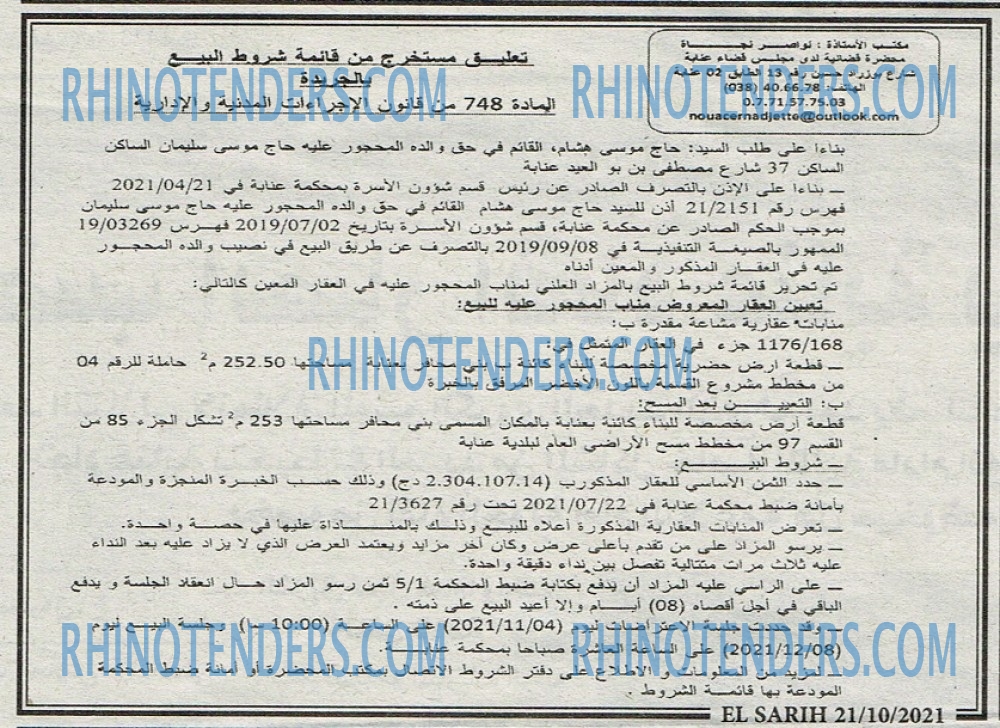 مكتب الأستاذة : نواصر نجاة
محضرة قضائية لدى مجلس قضاء عنابة
شارع بوزراد حسن رقم 13 الطابق 02 عنابة
الهاتف: 40.66.78 (038)
0.7.71.57.75.03
nouacernadjette@outlook.com
تعليق مستخرج من قائمة شروط البيع
بالجريدة
المادة 748 من قانون الإجراءات المدنية والإدارية
RHINOTENDERS.COM
RHINOTENDERS.COM
بناءا على طلب السيد: حاج موسى هشام، القائم في حق والده المحجور عليه حاج موسى سليمان الساكن
الساكن 37 شارع مصطفى بن بو العيد عنابة
ــ بناءا على الإذن بالتصرف الصادر عن رئيس قسم شؤون الأسرة بمحكمة عنابة في 2021/04/21
فهرس رقم 21/2151 أذن للسيد حاج موسى هشام القائم في حق والده المحجور عليه حاج موسى سليمان
بموجب الحكم الصادر عن محكمة عنابة، قسم شؤون الأسرة بتاريخ 2019/07/02 فهرس 19/03269
الممهور بالصيغة التنفيذية في 2019/09/08 بالتصرف عن طريق البيع في نصيب والده المحجور
عليه في العقار المذكور والمعين أدناه
تم تحرير قائمة شروط البيع بالمزاد العلني لمناب المحجور عليه في العقار المعين كالتالي:
تعيين العقار المعروض مناب المحجور عليه للبيع:
منابات عقارية مشاعة مقدرة ب:
1176/168 جزء في العقار المتمثل في:
RHINOTENDERS.COM
ــ قطعة ارض حضرية مخصصة للبناء كائنة ب بني محافر بعنابة مساحتها 252.50 م2 حاملة للرقم 04
من مخطط مشروع القسمة باللون الأخضر المرفق بالخبرة
ب: التعييـــن بعد المسح:
قطعة أرض مخصصة للبناء كائنة بعنابة بالمكان المسمى بني محافر مساحتها 253 م2 تشكل الجزء 85 من
القسم 97 من مخطط مسح الأراضي العام لبلدية عنابة
ــ شروط البيـــــع:
ــ حدد الثمن الأساسي للعقار المذكورب (2.304.107.14 دج) وذلك حسب الخبرة المنجزة والمودعة
بأمانة ضبط محكمة عنابة في 2021/07/22 تحت رقم 21/3627
ــ تعرض المنابات العقارية المذكورة أعلاه للبيع وذلك بالمنـــاداة عليها في حصة واحدة.
ــ يرسو المزاد على من تقدم بأعلى عرض وكان أخر مزايد ويعتمد العرض الذي لا يزاد عليه بعد النداء
عليه ثلاث مرات متتالية تفصل بين نداء دقيقة واحدة.
ــ على الراسي عليه المزاد أن يدفع بكتابة ضبط المحكمة 5/1 ثمن رسو المزاد حال انعقاد الجلسة و يدفع
الباقي في أجل أقصاه (08) أيـــام وإلا أعيد البيع على ذمته .
ــ وقد حددت جلسة الاعتراضات ليوم (2021/11/04) على الساعة (10:00 سا) وجلسة البيع ليوم
(2021/12/08) على الساعة العاشرة صباحا بمحكمة عنابـــة.
RHINOTENDERS.COM
RHINOTENDERS.COM
ــ لمزيد من المعلومات و الاطلاع على دفتر الشروط الاتصال بمكتب المحضرة أو أمانة ضبط المحكمة
المودعة بها قائمة الشروط .
EL SARIH 21/10/2021